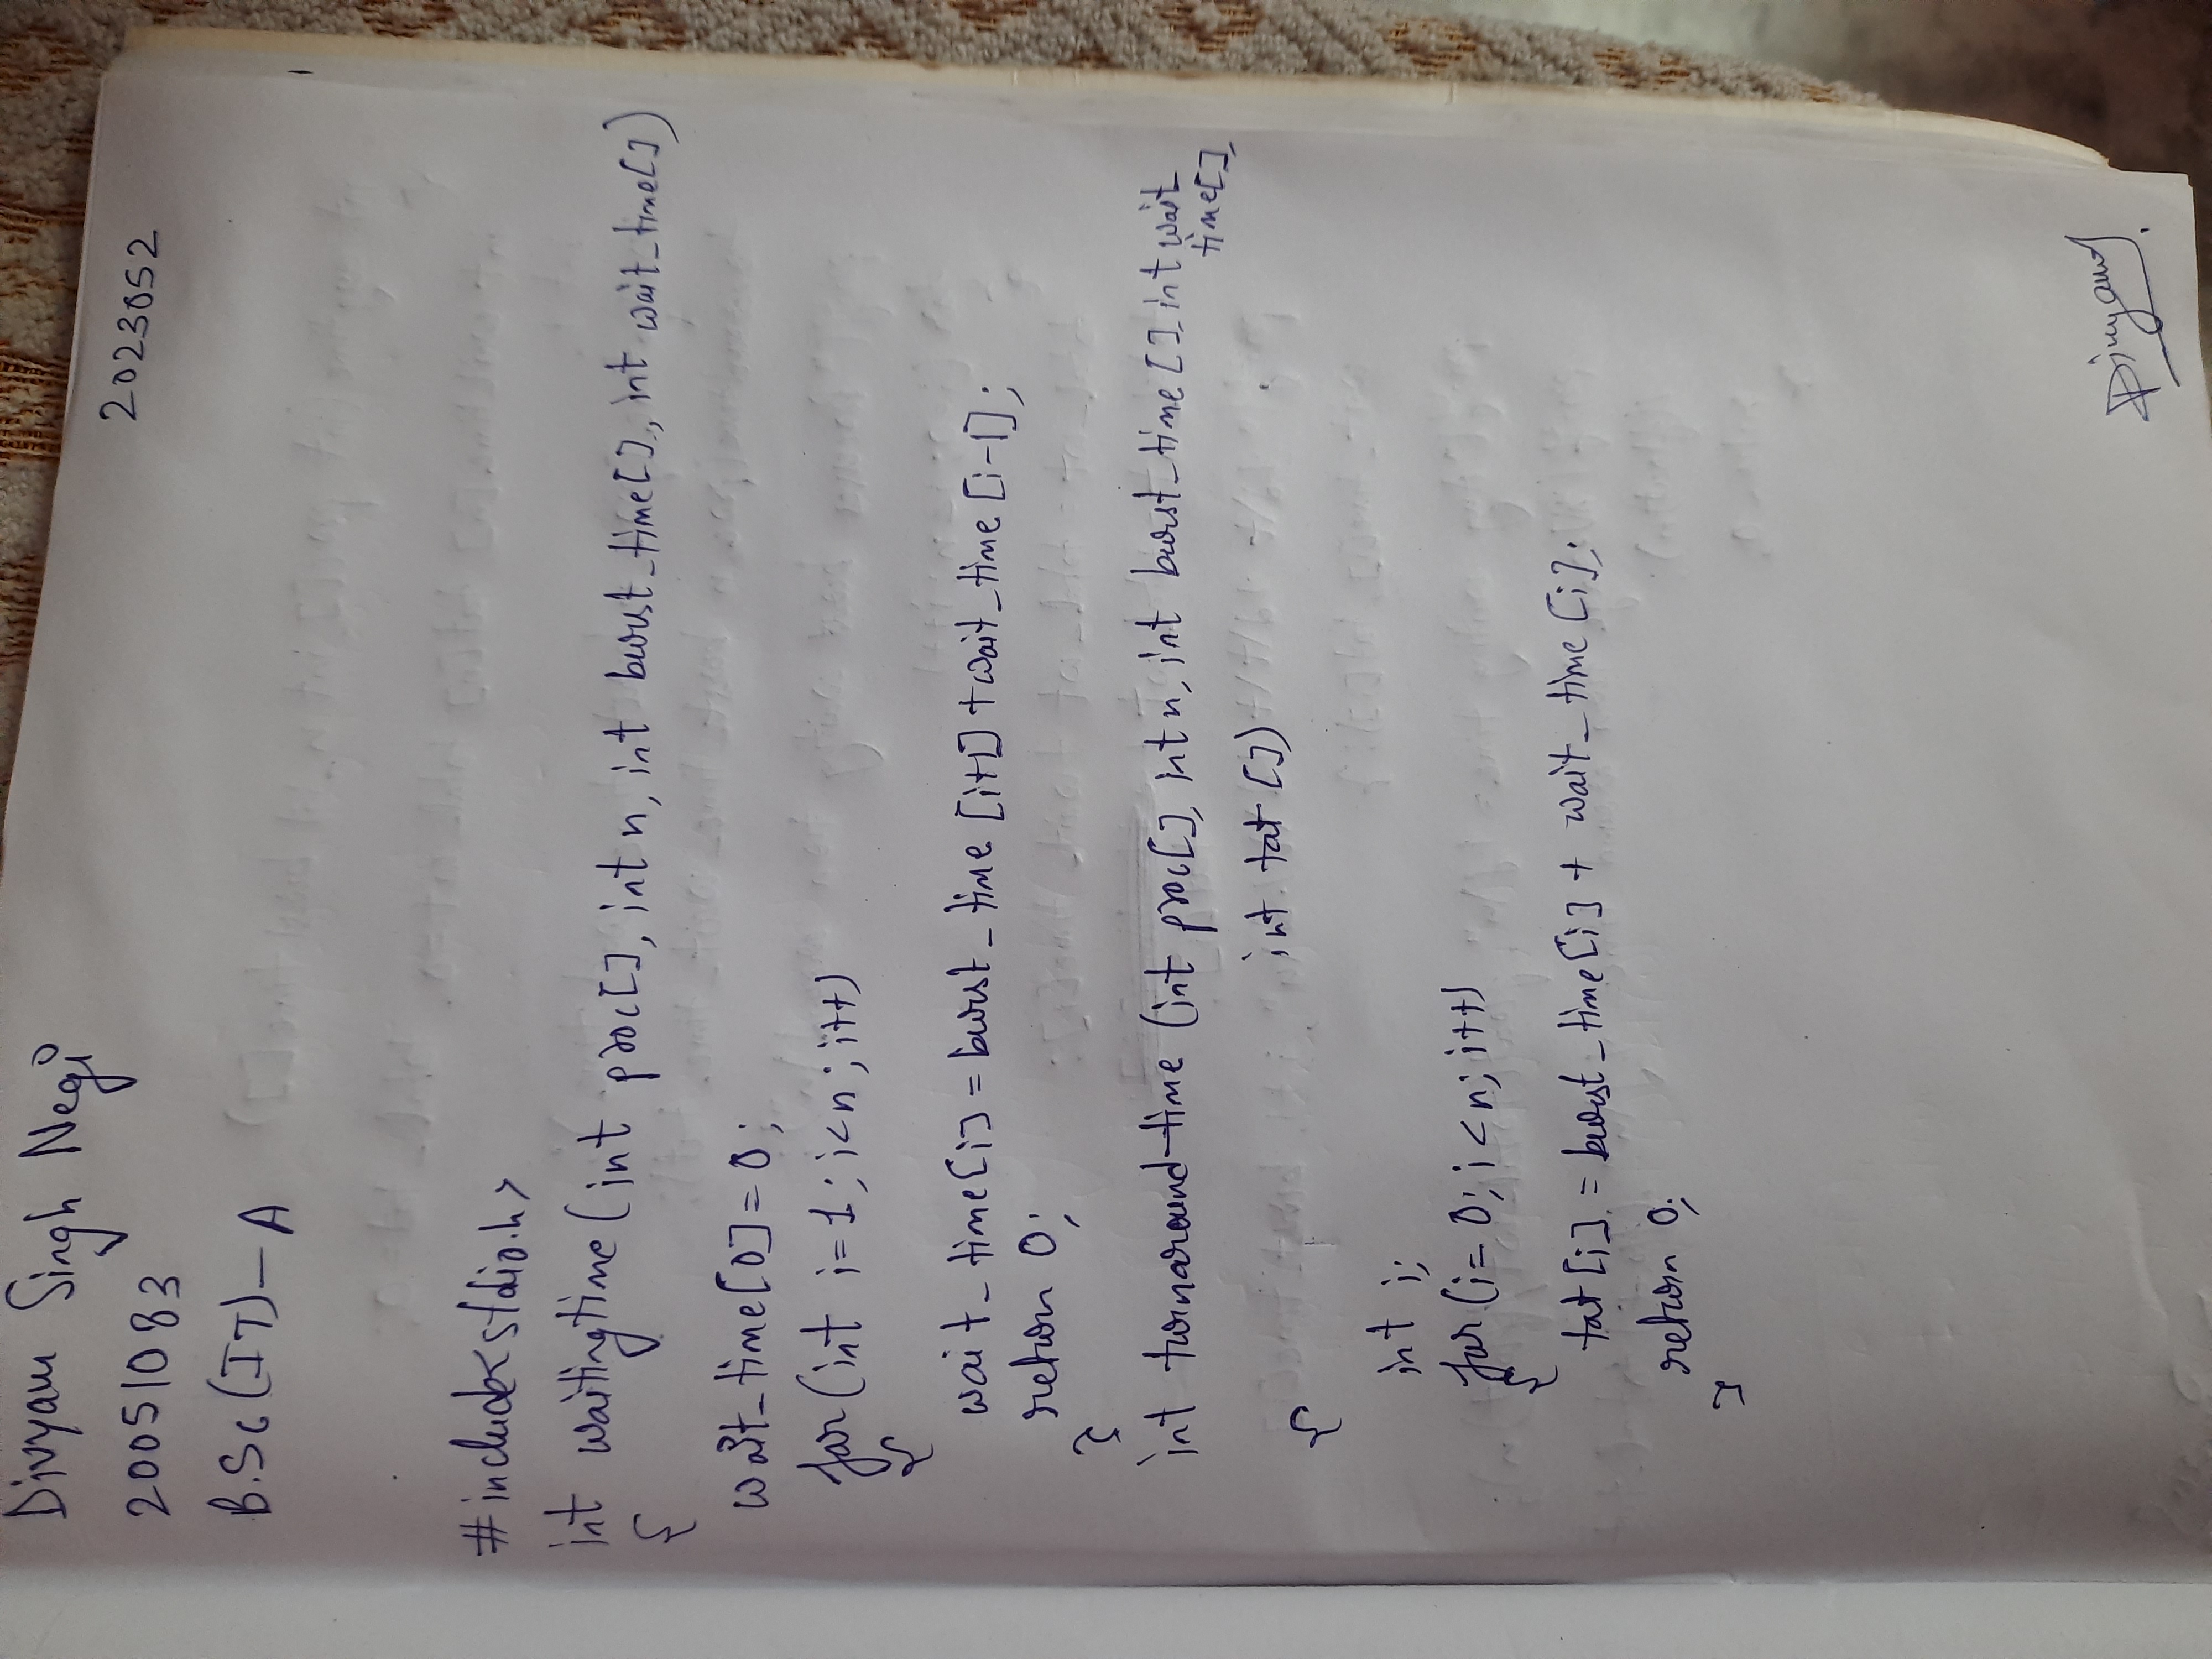 Divyam Singh Negi
2023052
20051083
B.Sc (IT) - A
#include<stdio.h>
int waitingtime (int proc[], int n, int burst_time[], int wait_time[])
{
wait_time[0]=0;
for (int i=1; i<n; i++)
{
wait_time[i] = burst_time [i+1] + wait_time [i-1];
return 0;
}
int turnaround-time (int proc[], int n, int burst_time [], int wait
time[],
int tat [])
{
int i;
for (i=0; i<n; i++)
{
tat [i] = burst_time[i] + wait_time [i];
return 0;
}
Divyam